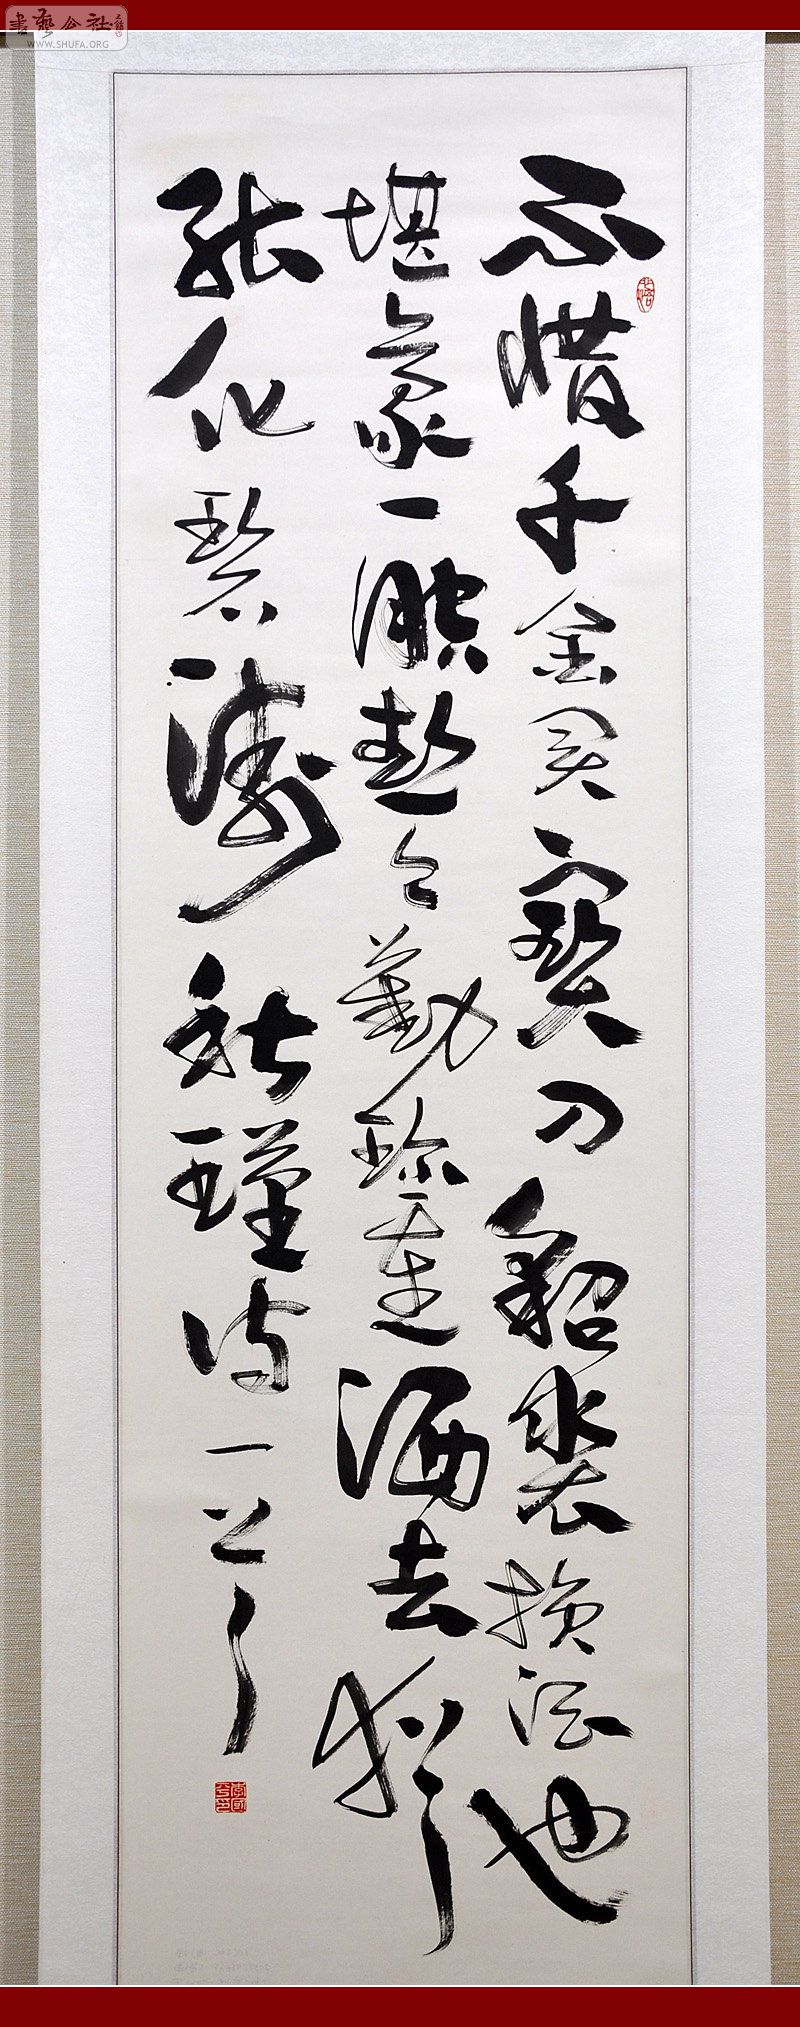 書藝公社
WWW.SHUFA.ORG
不惜千金買寶刀貂裘換酒也
堪豪一腔熱血勤珍重洒去猶
能化碧濤秋瑾詩一